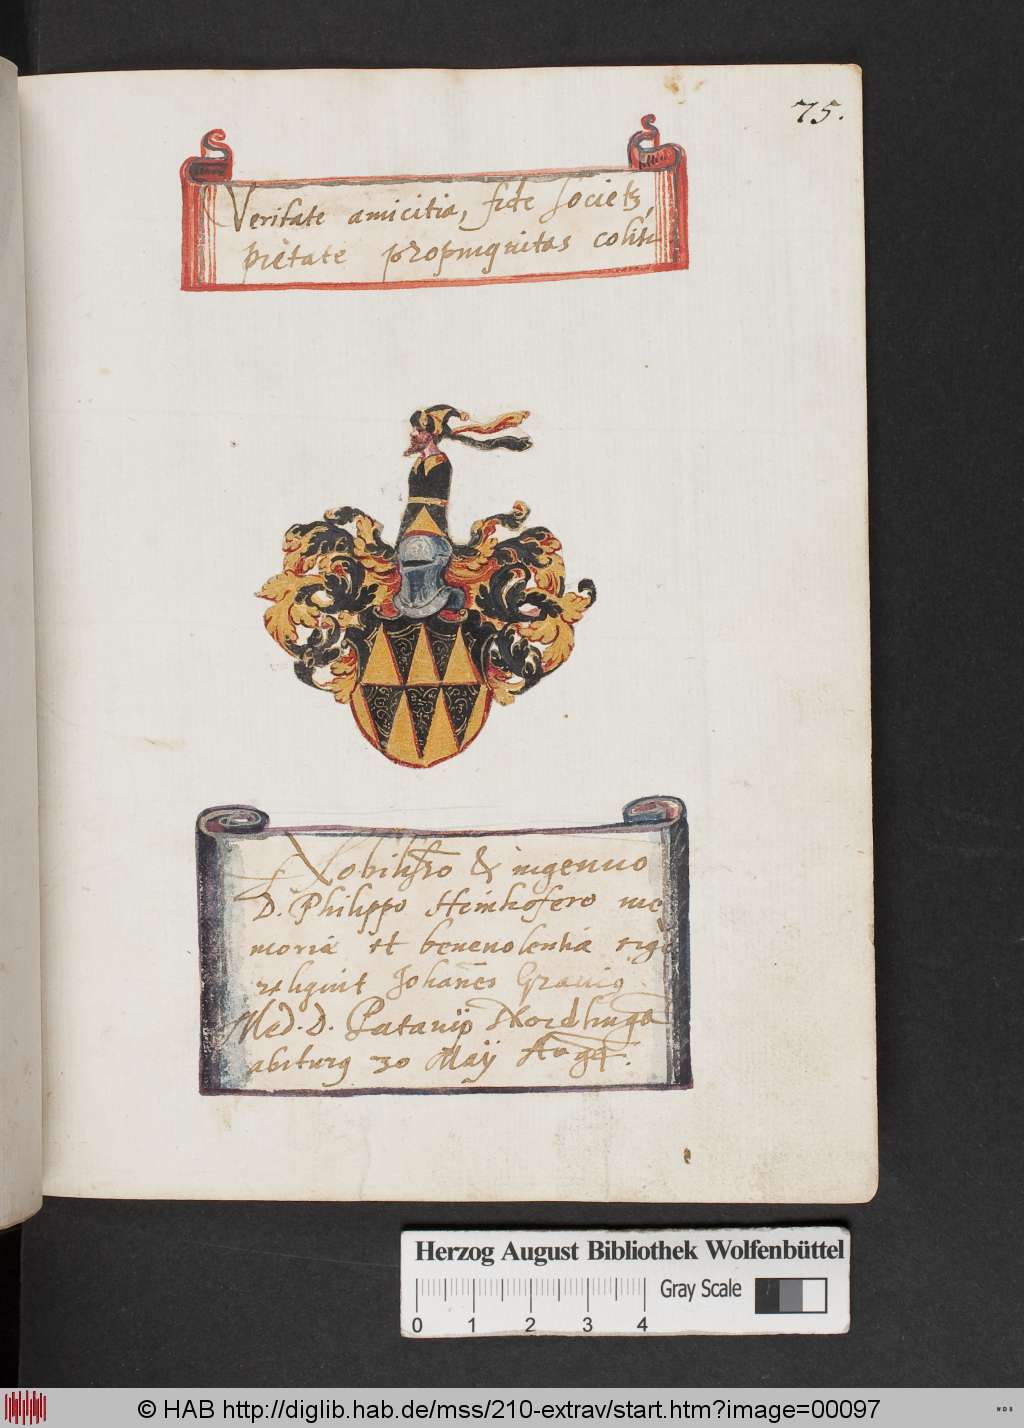 75.
Veritate amicitia, fide Societs,
pietate propinquitas colitu
Nobiliss.o & ingenuo
D. Philippo Heinhofero me
moriæ et benevolentiæ ergò
reliquit Johañes Gravius
Med. D. Patavijs Nordlingã
abiturus 30 Maÿ Aug.
Herzog August Bibliothek Wolfenbüttel
Gray Scale
0 1 2 3 4
© HAB http://diglib.hab.de/mss/210-extrav/start.htm?image=00097